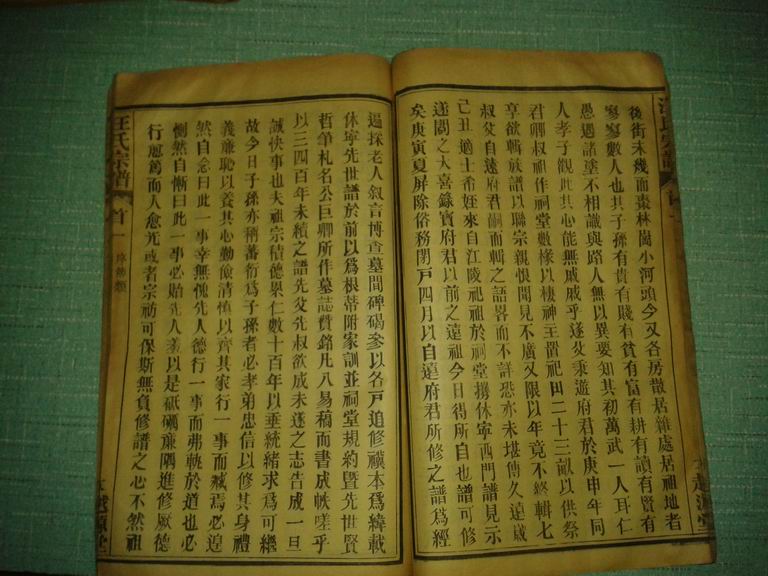 後街未幾而棗林崗小河頭今又各房散居雜處居祖地者
寥寥數人也其子孫有貴有賤有貧有富有耕有讀有賢有
愚遇諸塗不相識與路人無以異要知其初萬武一人耳仁
人孝子觀此其心能無戚戚乎遂父秉遊府君於庚申年同
君卿叔祖作祠堂數楹以棲神主置祀田二十三畝以供祭
享欲輯族譜以聯宗親恨聞見不廣又限以年竟不終輯七
叔父自遠府君嗣而輯之語畧而不詳恐亦未堪傳久遠歲
己丑適士希姪來自江陵祀祖於祠堂攜休寧西門譜見示
遂閱之大喜錄寶府君以前之遠祖今日得所自也譜可修
矣庚寅夏屏除俗務閉戸四月以自遠府君所修之譜爲經
遍採老人叙言博查墓間碑碣參以各戸追修襆本爲緯載
休寧先世譜於前以爲根蒂附家訓並祠堂規約曁先世賢
哲筆札名公巨卿所作墓誌贊銘凡八易稿而書成帙嗟乎
以三四百年未續之語先父先叔欲成未遂之志告成一旦
誠快事也夫祖宗積德累仁數十百年以垂統緒求爲可繼
故今日子孫亦稍蕃衍爲子孫者必孝弟忠信以修其身禮
義廉恥以養其心勤儉清慎以齊其家行一事而臧焉必遑
然自念曰此一事幸無愧先人德行一事而弗軌於道也必
惻然自慚曰此一事必貽先人羞以是砥礪廉隅進修厥德
行愿篤而人愈光或者宗祊可保斯無負修譜之心不然祖
汪氏宗譜
首一
序勢類
越源堂